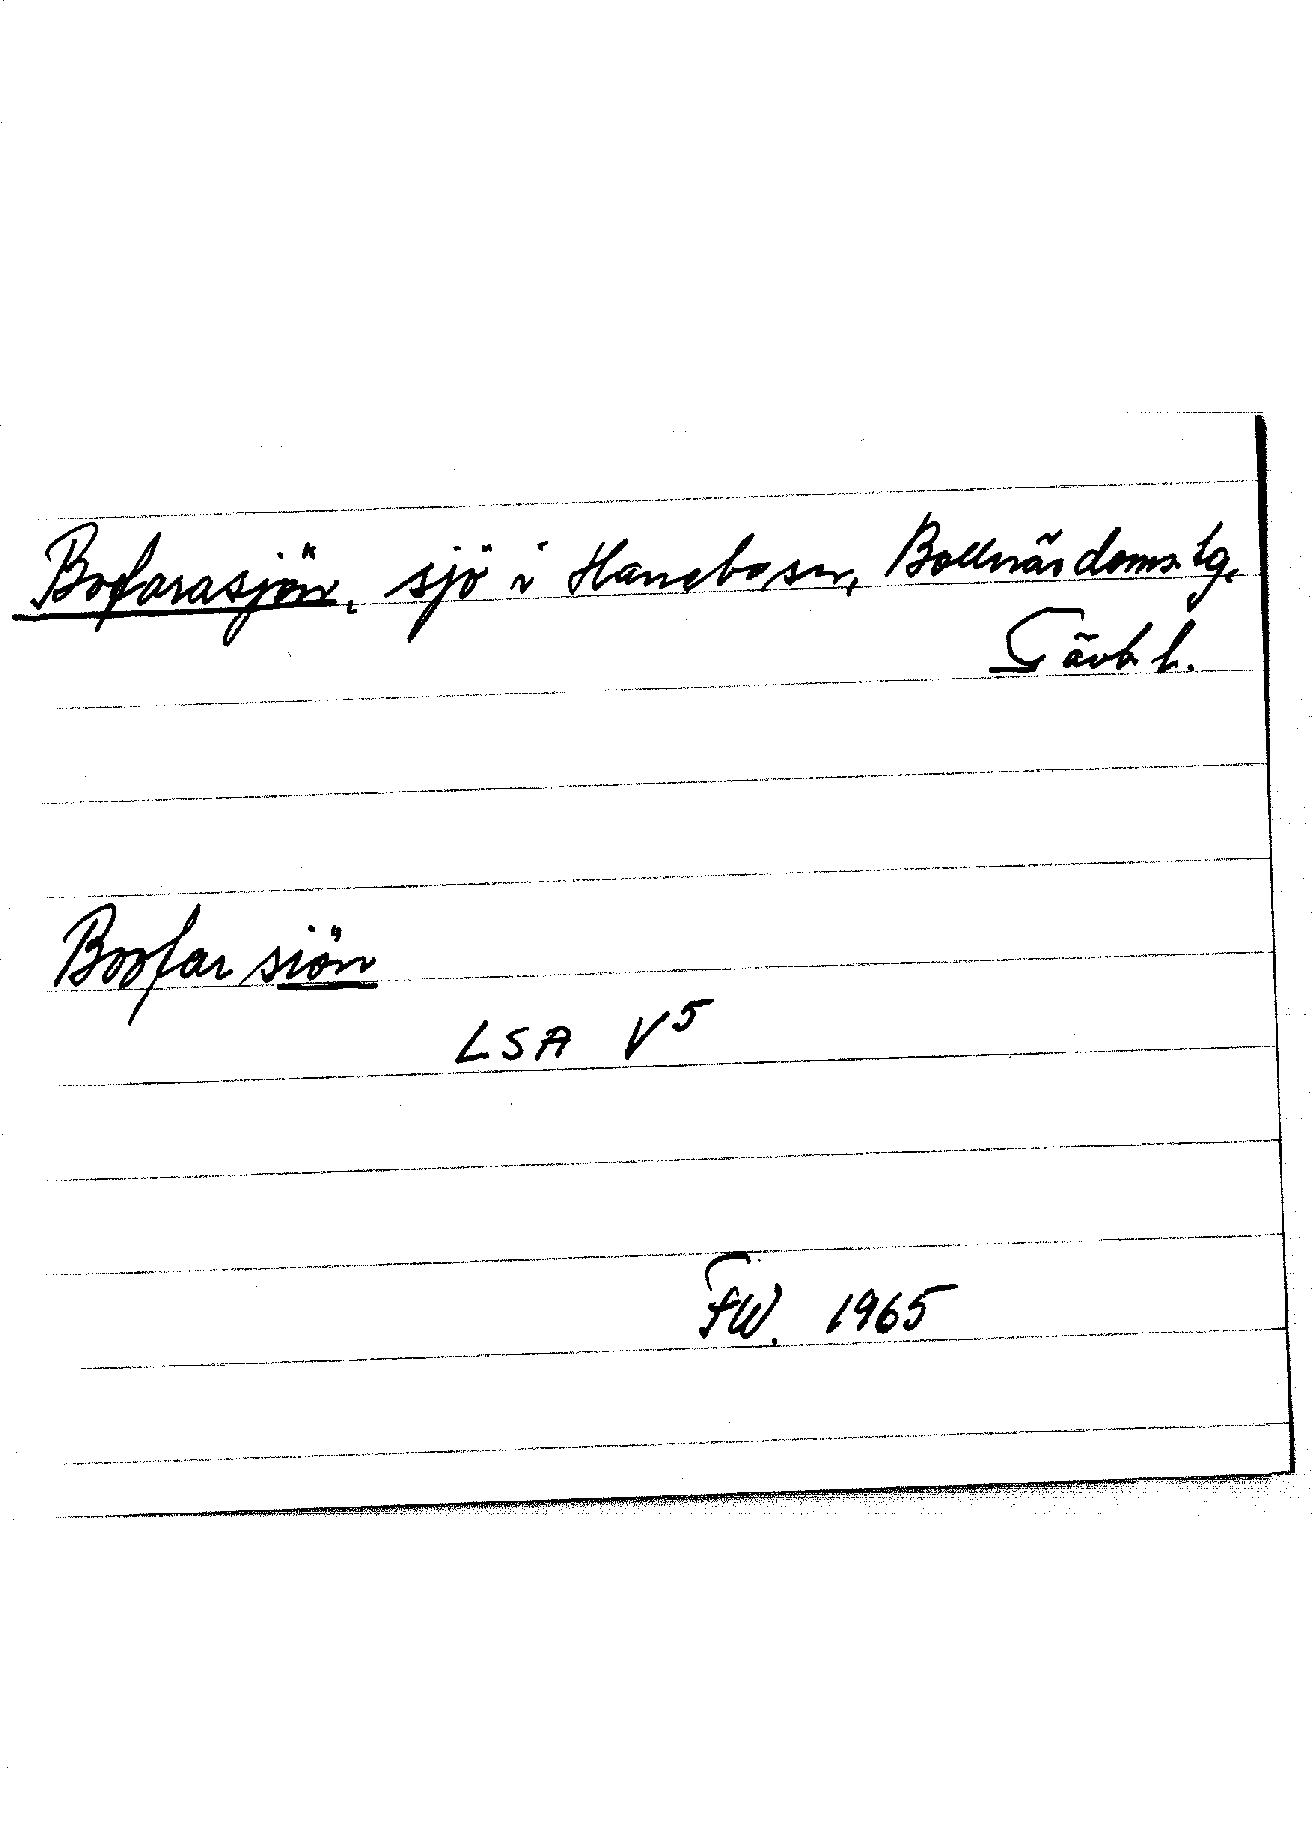 Bofarasjön, sjö i Hanebo sn, Bollnäs doms.lg,
Gävb l.
Boofar siön
LSA V5
FW. 1965